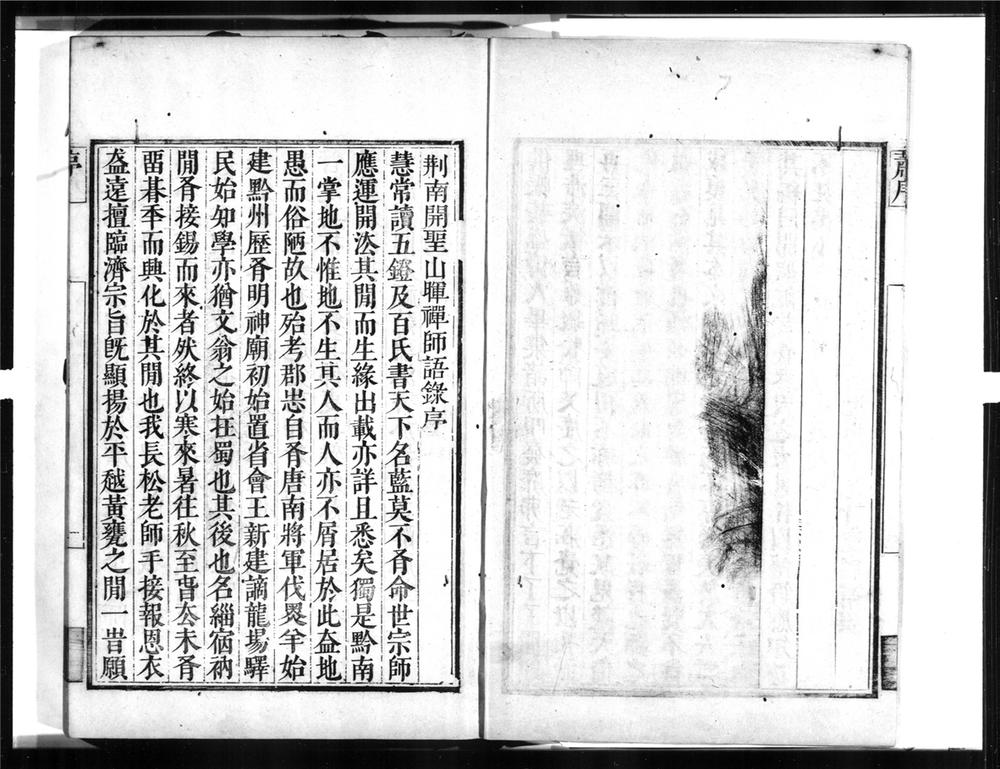 荆南開聖山暉禪師語錄序
慧常讀五鐙及百氏書天下名藍莫不㞢命世宗師
應運開法其閒而生緣出載亦詳且悉矣獨是黔南
一掌地不惟地不生其人而人亦不屑居於此葢地
愚而俗陋故也殆考郡志自㞢唐南將軍伐㐮牟始
建黔州歷㞢明神廟初始置省會王新建謫龍場驛
民始知學亦猶文翁之始在蜀也其後也名緇宿衲
閒㞢接錫而來者然終以寒來暑往秋至旹厺未㞢
畱朞秊而興化於其閒也我長松老師手接報恩衣
葢遠擅臨濟宗旨旣顯揚於平越黃甕之閒一旹願